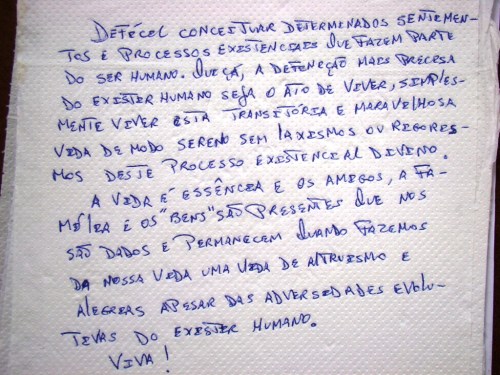 DIFÍCIL CONCEITUAR DETERMINADOS SENTIMEN-
TOS E PROCESSOS EXISTENCIAIS QUE FAZEM PARTE
DO SER HUMANO. QUIÇÁ, A DEFINIÇÃO MAIS PRECISA
DO EXISTIR HUMANO SEJA O ATO DE VIVER, SIMPLES-
MENTE VIVER ESTA TRANSITÓRIA E MARAVILHOSA
VIDA DE MODO SERENO SEM LAXISMOS OU RIGORIS-
MOS DESTE PROCESSO EXISTENCIAL DIVINO.
A VIDA É ESSÊNCIA E OS AMIGOS, A FA-
MÍLIA E OS "BENS" SÃO PRESENTES QUE NOS
SÃO DADOS E PERMANECEM QUANDO FAZEMOS
DA NOSSA VIDA UMA VIDA DE ALTRUISMO E
ALEGRIAS APESAR DAS ADVERSIDADES EVOLU-
TIVAS DO EXISTIR HUMANO.
VIVA!